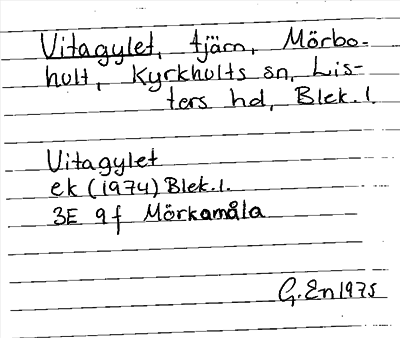 Vitagylet, tjärn, Mörbo-
hult, Kyrkhults sn, Lis-
ters hd, Blek. l.
Vitagylet
ek (1974) Blek. l.
3E 9f Mörkamåla
G. En 1975